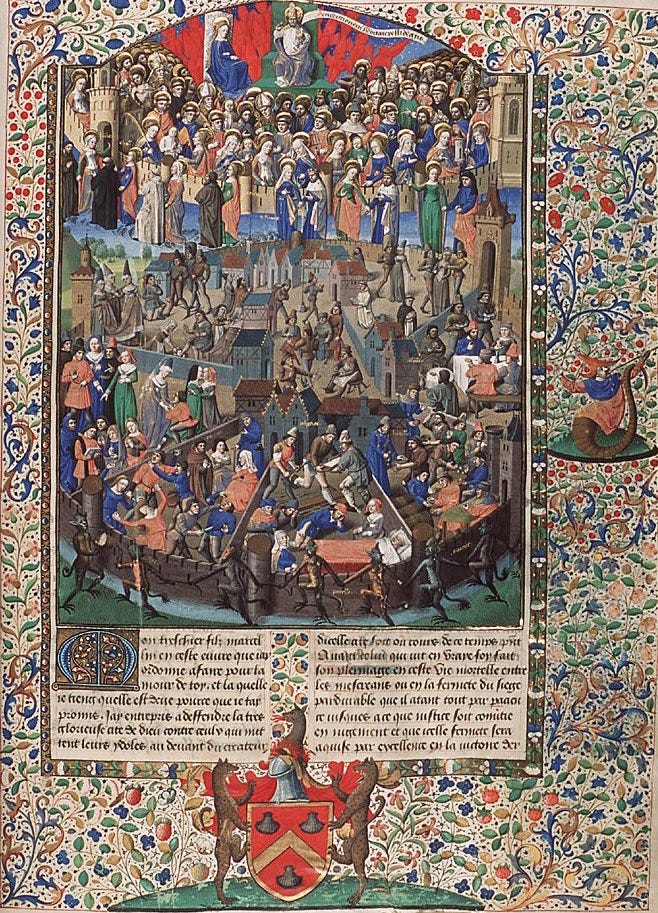 Mon treschier filz marcel
lin en ceste euvre que iay
ordonne a faire pour la
mour de toy et la quelle
ie tieng quelle est deue pource que ie tay
promis. Jay entrepris a deffendre la tres
glorieuse cite de dieu contre ceulx qui met
tent leurs ydoles au devant du createur
dicelle cite soit ou cours de ce temps pnt
qui vit en vraye foy fait
son plerinage en ceste vie mortelle entre
les mescreans ou en la fermete du siege
pardurable que il atant tout par pacie
et iusques a ce que iustice soit
en iugement et que celle fermete sera
aquise par excellence en la victoire der